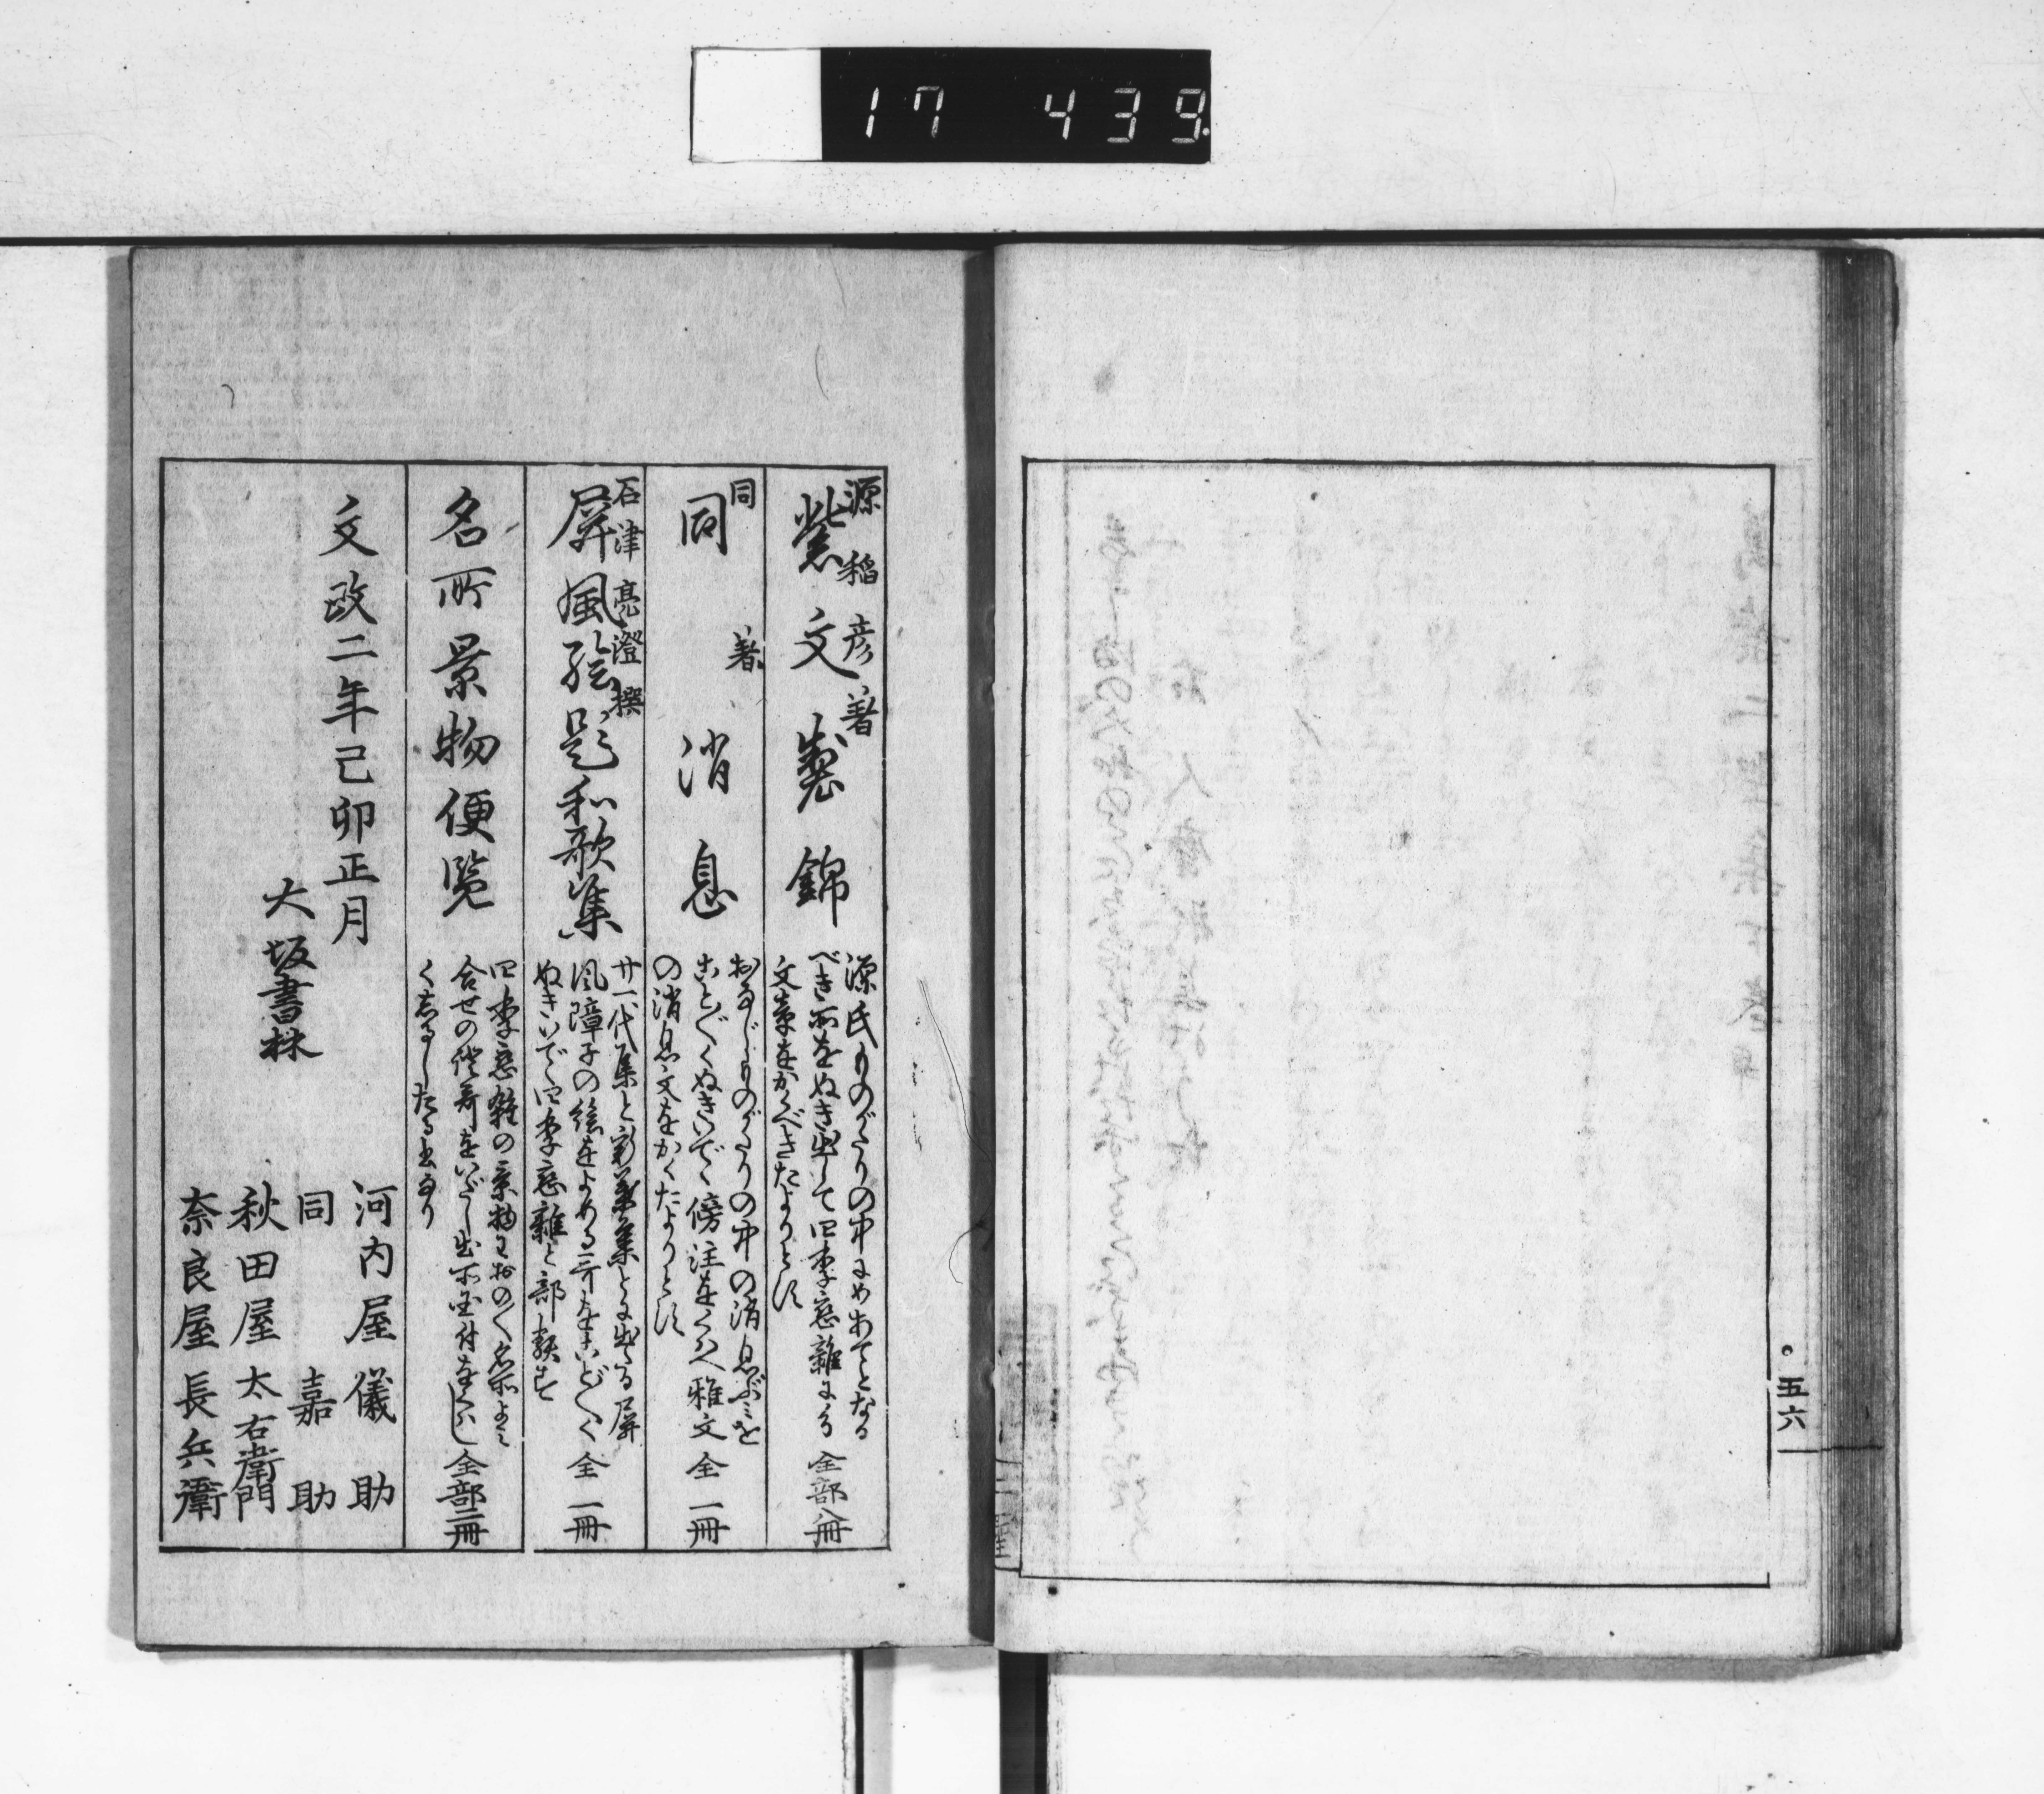 17 439
五六
源稻彦著
紫文製錦
源氏ものがたりの中にめあてとなる
べき所をぬき出して四季恋雑にわ
文章をかくべきたよりとす
全部八冊
同著
同消息
おなじものがたりの中の消息ぶミを
ことごとくぬきいでゝ傍注をくはへ雅文
の消息文をかくたよりとす
全一冊
石津亮澄撰
屏風絵題和歌集
廿一代集と新葉集とに出たる屏
風障子の絵をよめる哥をことごとく
ぬきいでゝ四季恋雑と部類す
全一冊
名所景物便覧
四季恋雑の景物におの〱名所よミ
合せの証哥をいだし出所国付をくハし
くしるしたる書なり
全部二冊
文政二年己卯正月
大坂書林
河内屋儀助
同嘉助
秋田屋太右衛門
奈良屋長兵衛